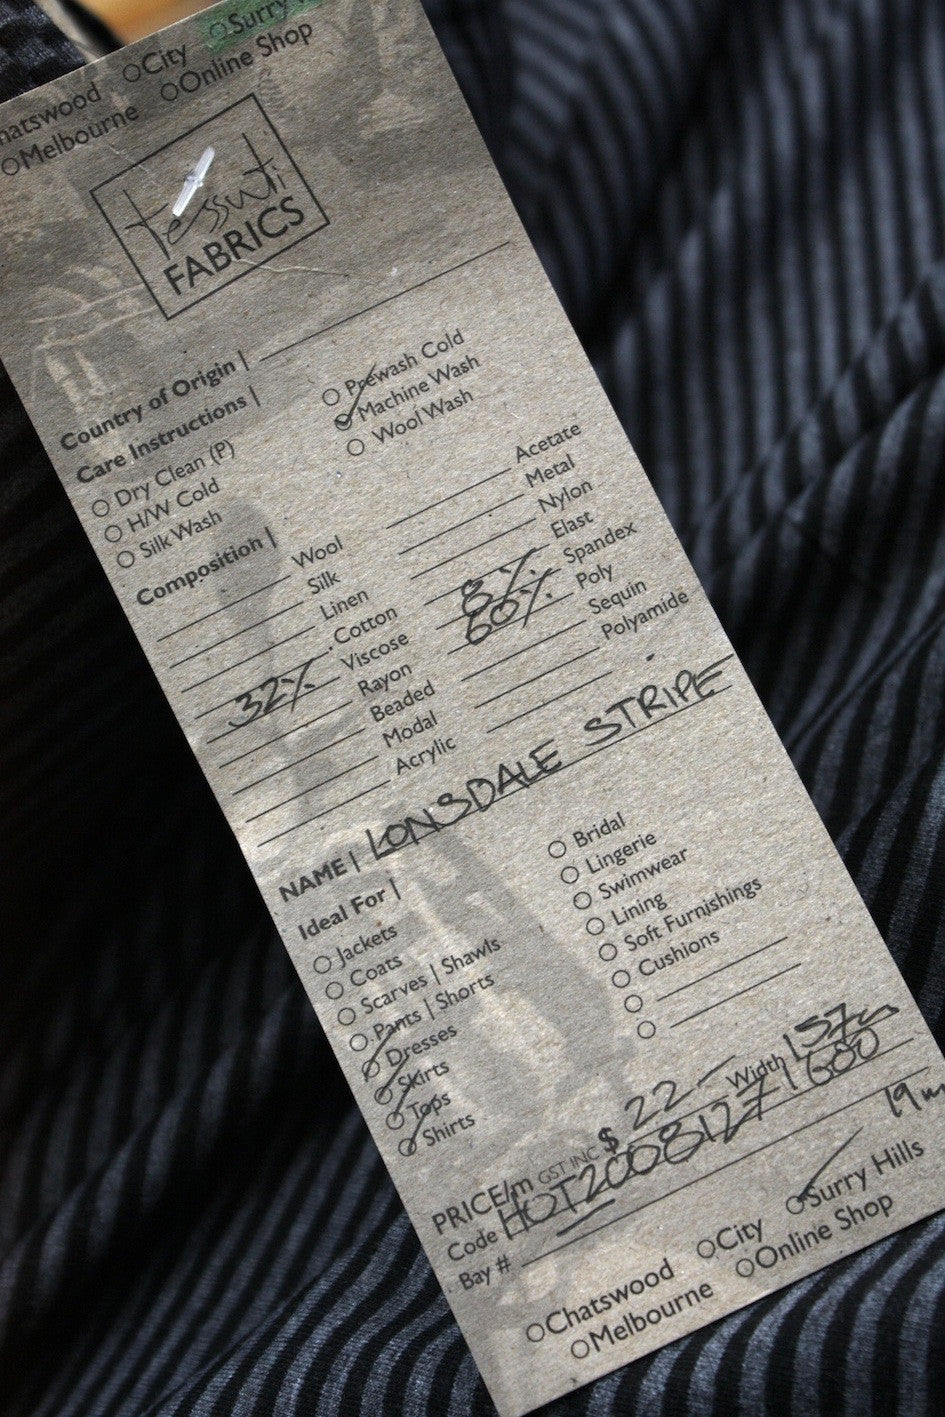 Chatswood ○City ○Surry
○Melbourne ○Online Shop
tessuti
FABRICS
Country of Origin |
Care Instructions |
○ Dry Clean (P)
○ H/W Cold
○ Silk Wash
○ Prewash Cold
○ Machine Wash
○ Wool Wash
Composition |
Wool
Silk
Linen
Cotton
32% Viscose
Rayon
Beaded
Modal
Acrylic
Acetate
Metal
Nylon
Elast
8% Spandex
60% Poly
Sequin
Polyamide
NAME | LONSDALE STRIPE
Ideal For |
○ Jackets
○ Coats
○ Scarves | Shawls
○ Pants | Shorts
○ Dresses
○ Skirts
○ Tops
○ Shirts
○ Bridal
○ Lingerie
○ Swimwear
○ Lining
○ Soft Furnishings
○ Cushions
○
○
PRICE/m GST INC $ 22 – Width 157cm
Code HOT20081271600
Bay # 19m
○Chatswood ○City ○Surry Hills
○Melbourne ○Online Shop